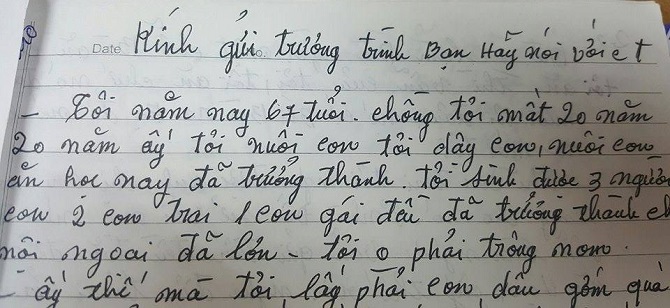 Date
Kính gửi trưởng trình Bạn Hãy nói với et
- Tôi năm nay 67 tuổi. chồng tôi mất 20 năm
20 năm ấy tôi nuôi con tôi dậy con, nuôi con
ăn học nay đã trưởng thành. tôi sinh được 3 người
con 2 con trai 1 con gái đều đã trưởng thành
nội ngoại đã lớn - tôi o phải trông nom.
- ấy thế mà tôi, lấy phải con dâu gớm quá